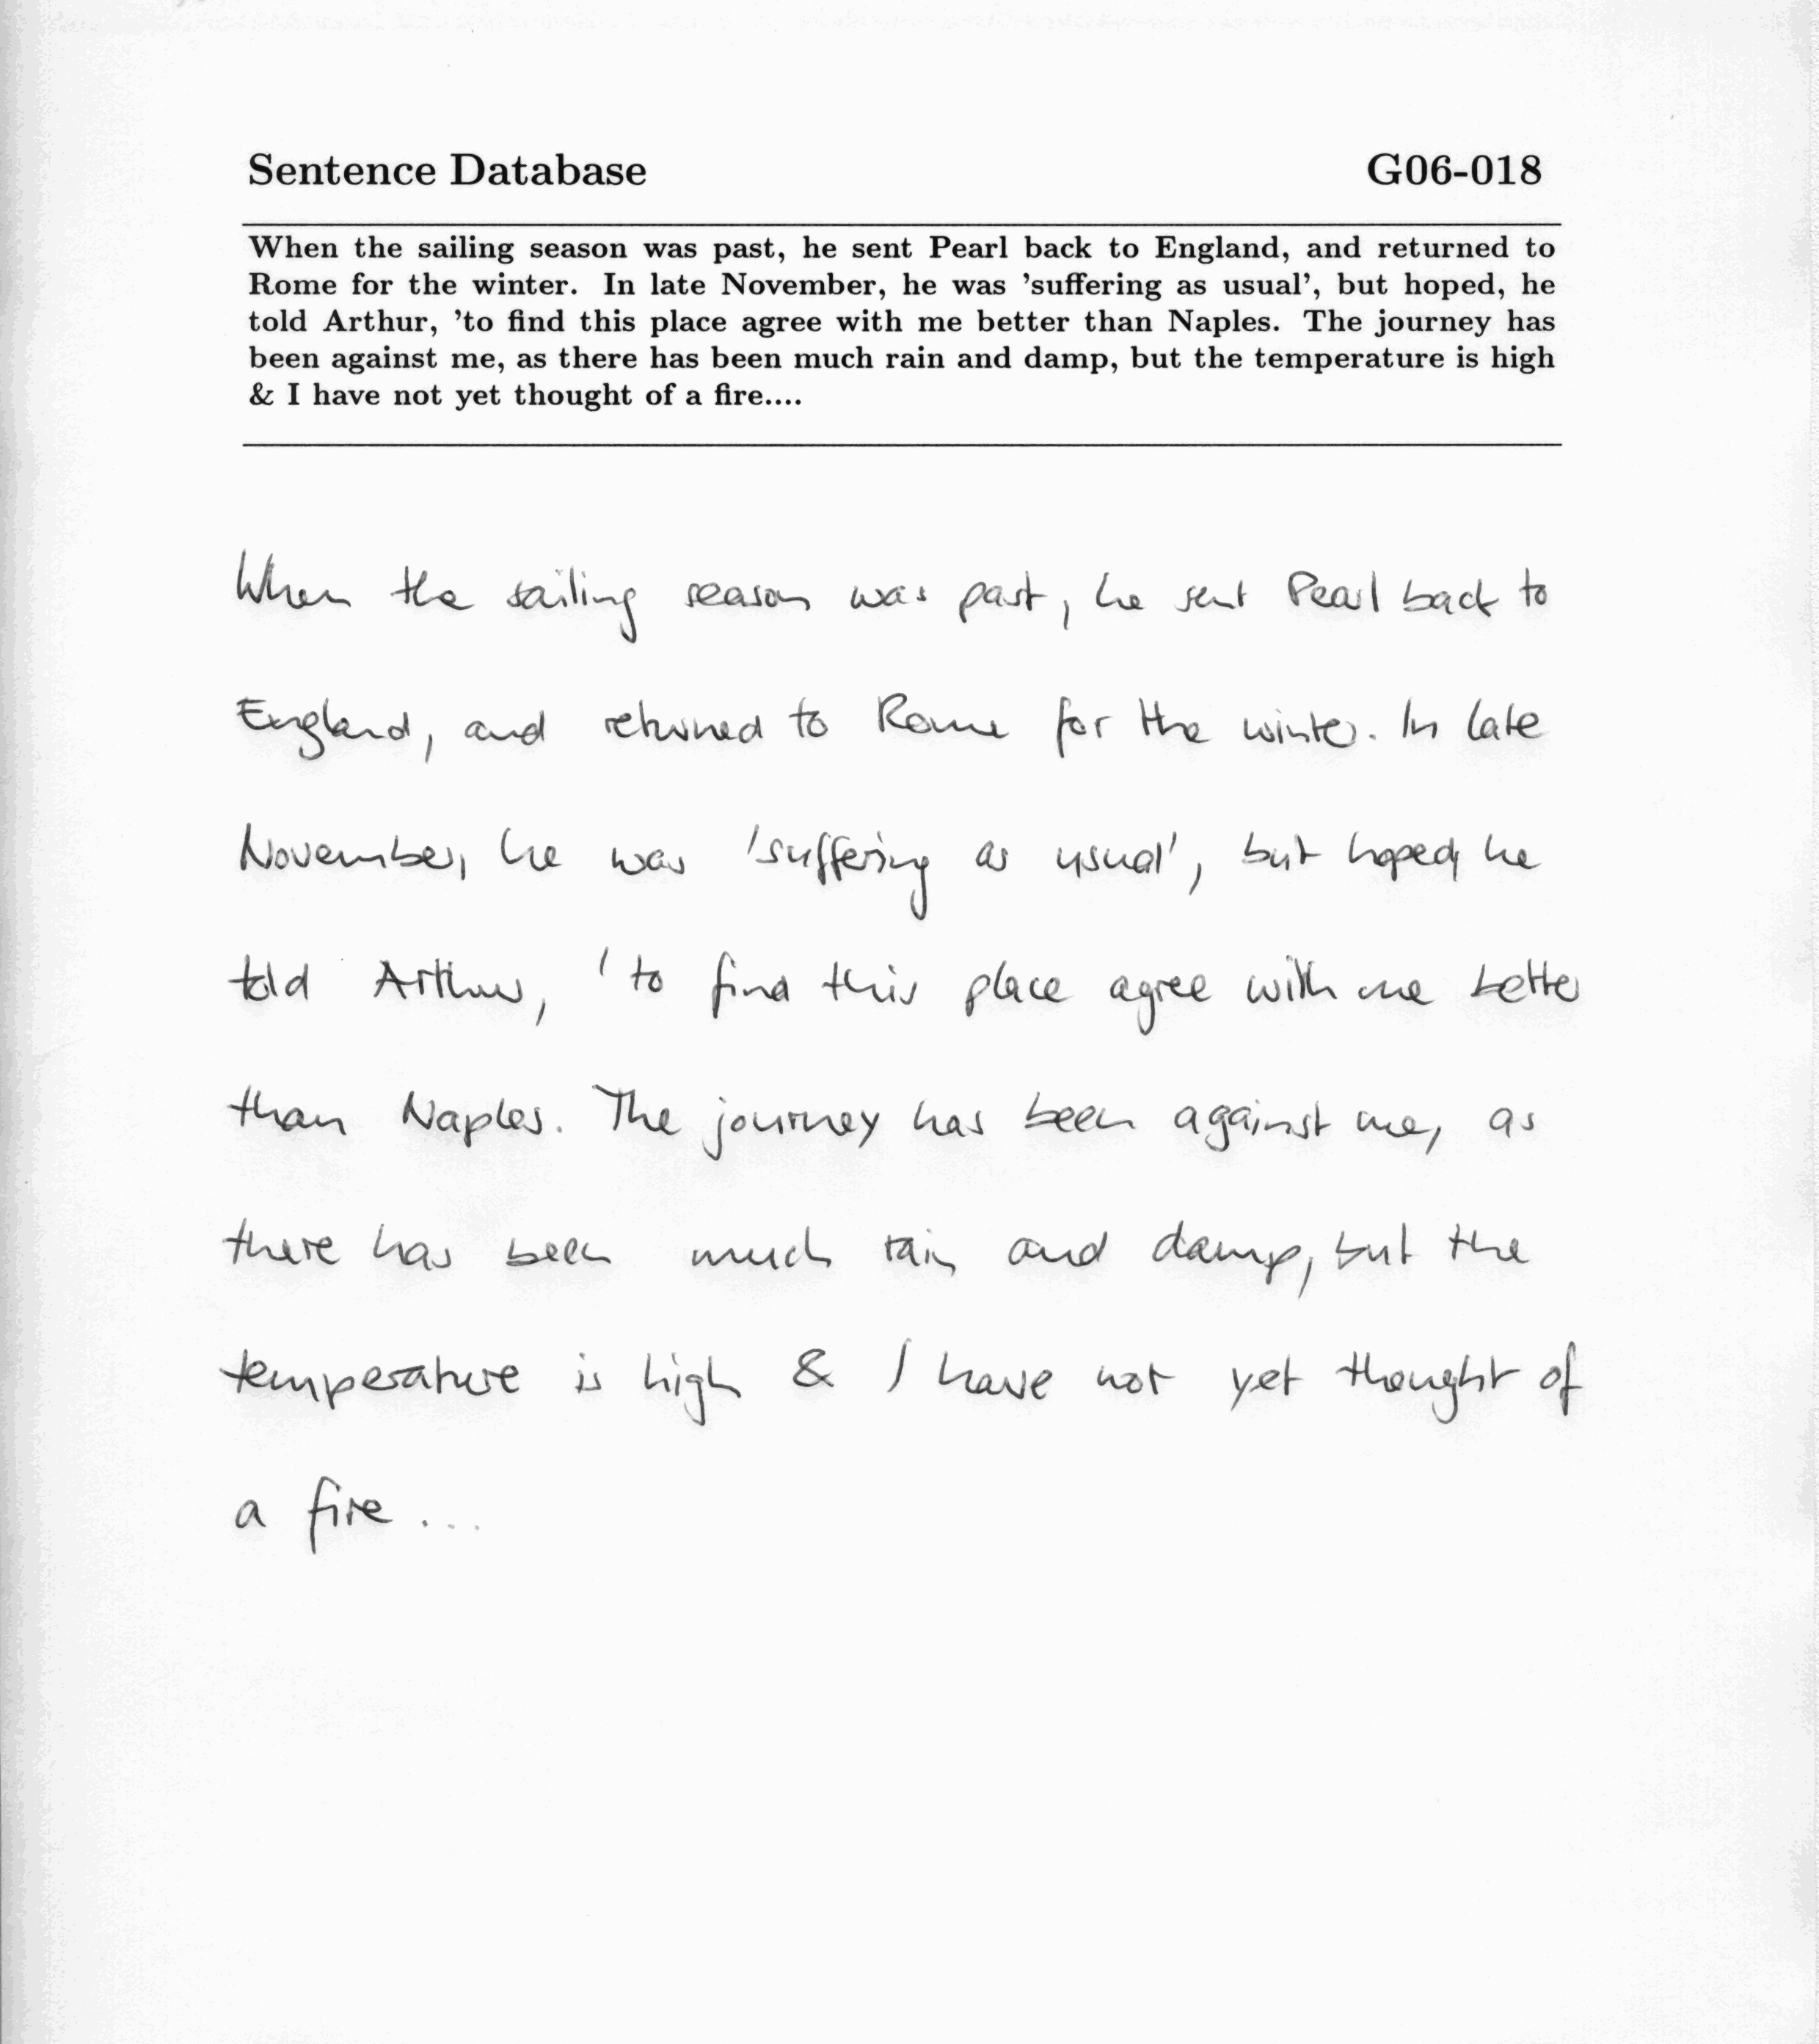 Sentence Database G06-018
When the sailing season was past, he sent Pearl back to England, and returned to
Rome for the winter. In late November, he was 'suffering as usual', but hoped, he
told Arthur, 'to find this place agree with me better than Naples. The journey has
been against me, as there has been much rain and damp, but the temperature is high
& I have not yet thought of a fire....
When the sailing season was past, he sent Pearl back to
England, and returned to Rome for the winter. In late
November, he was 'suffering as usual', but hoped, he
told Arthur, 'to find this place agree with me better
than Naples. The journey has been against me, as
there has been much rain and damp, but the
temperature is high & I have not yet thought of
a fire ...